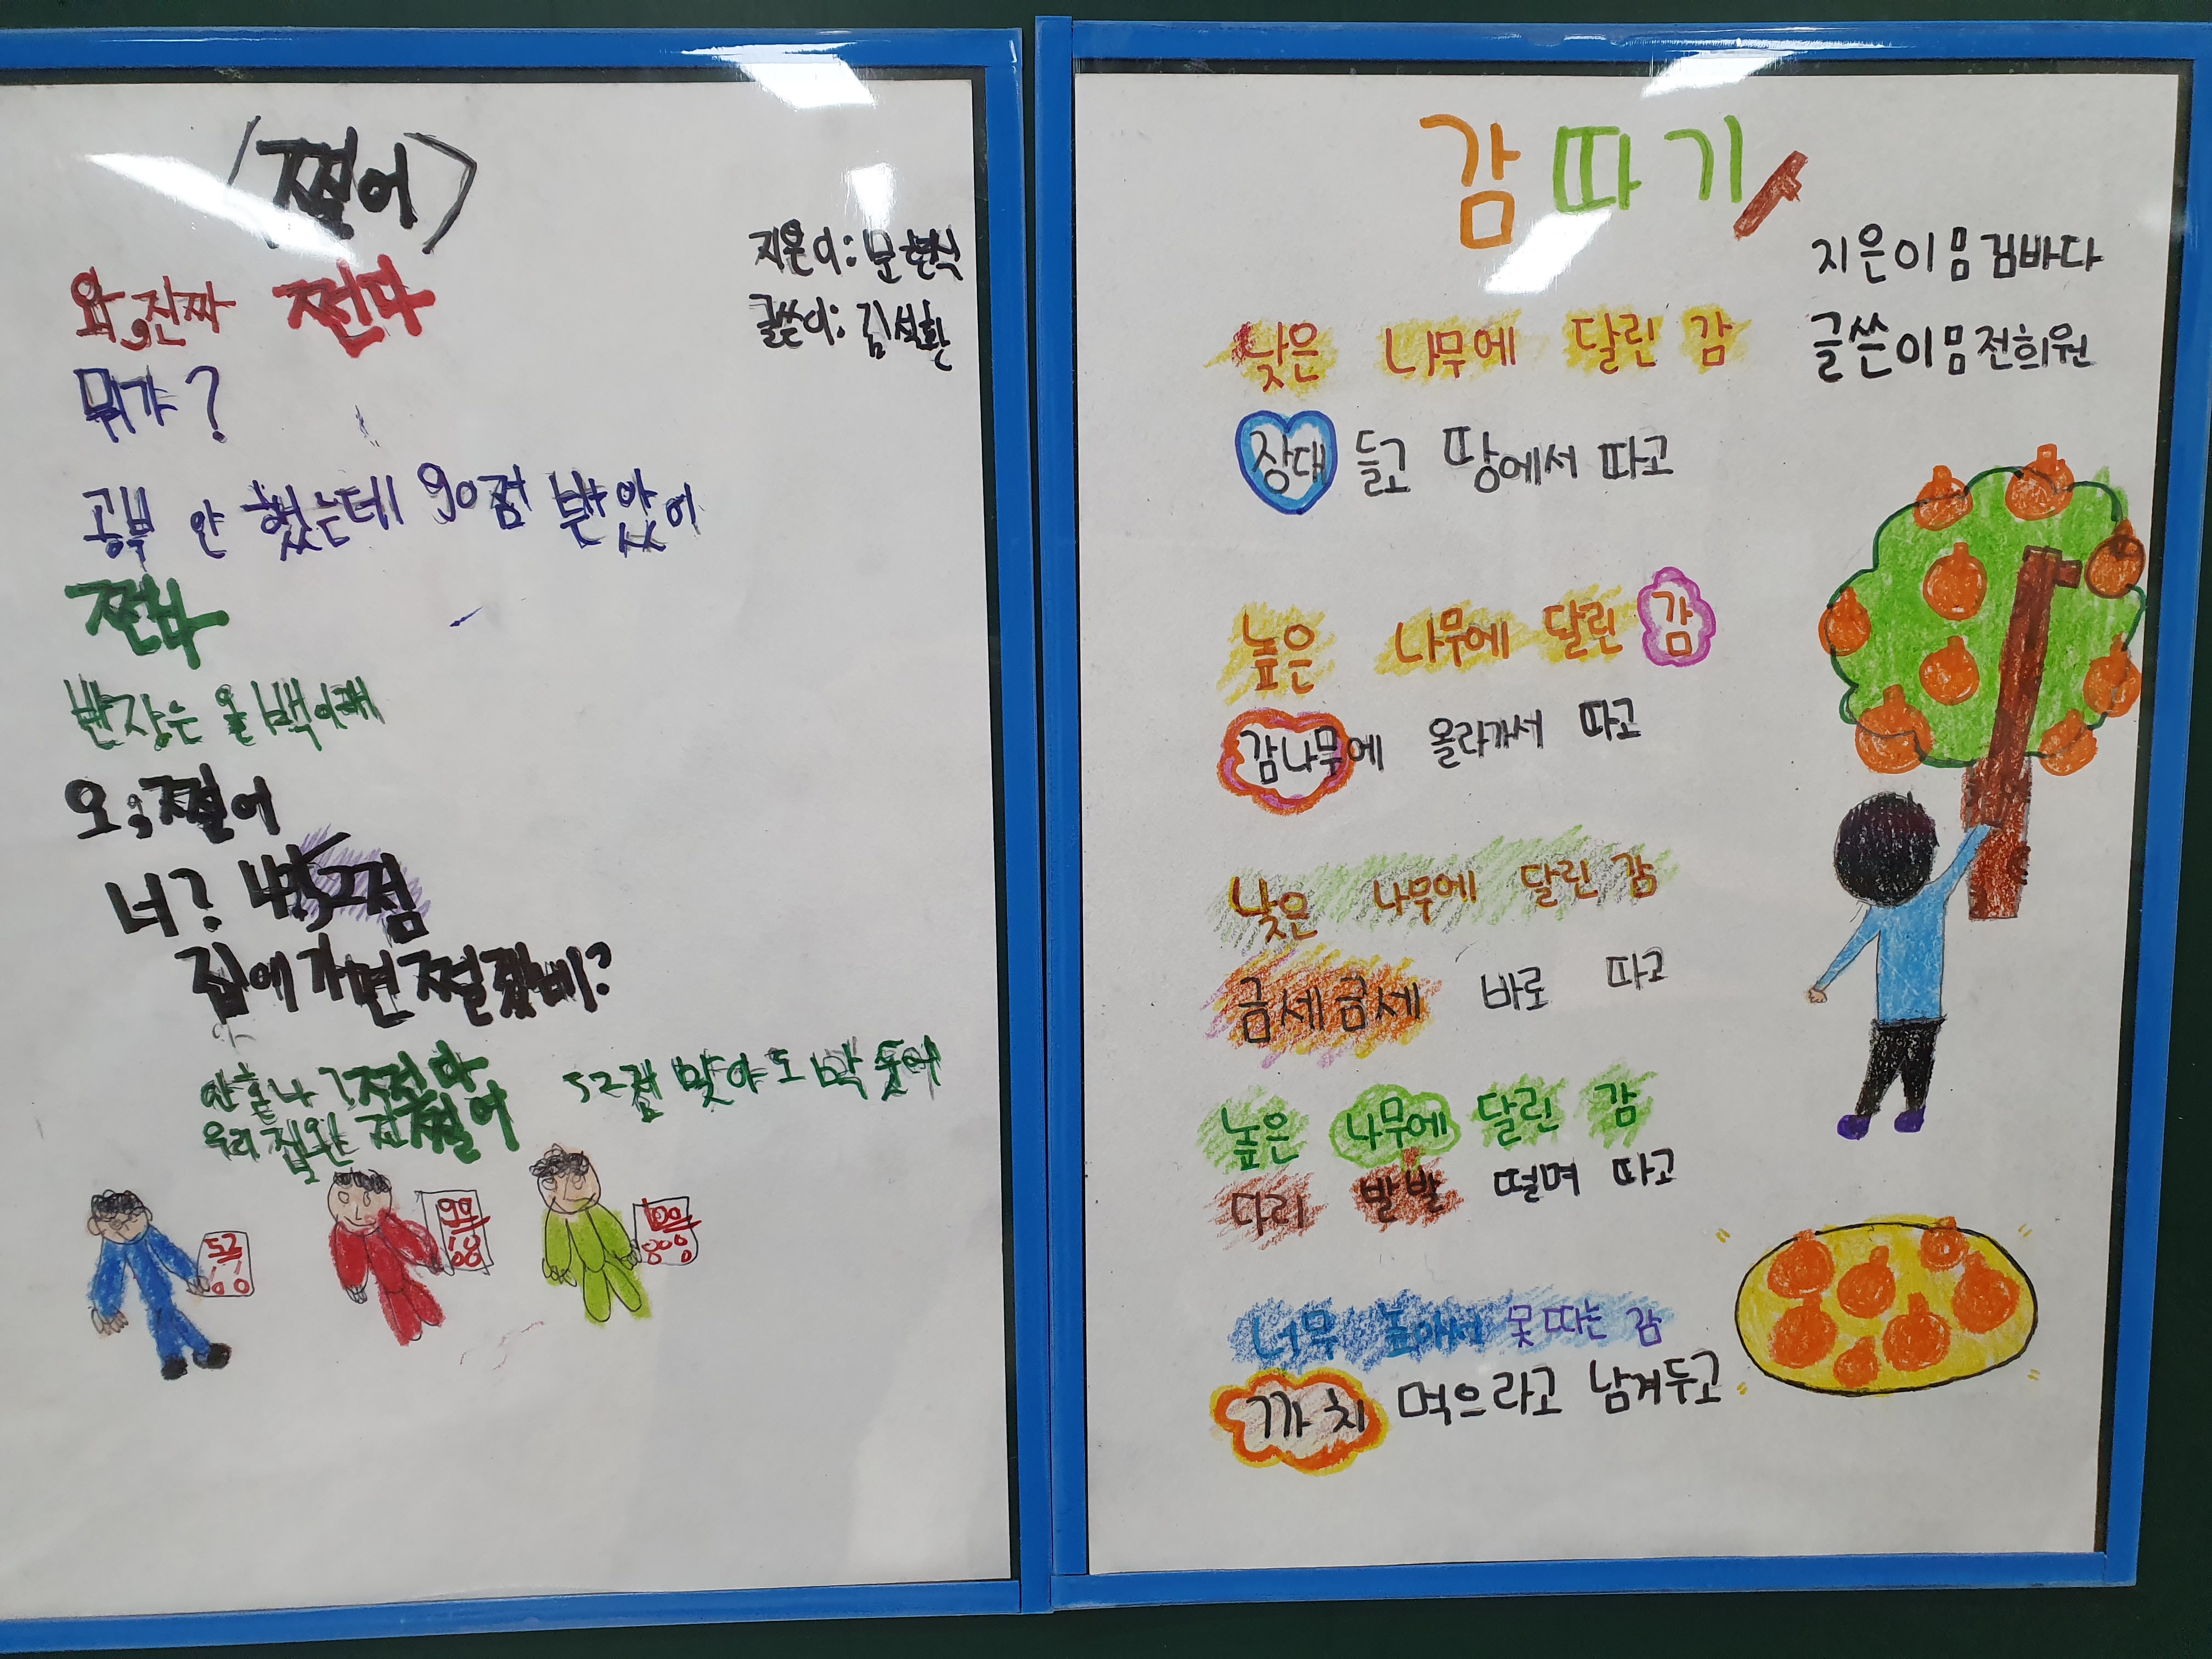 <쩔어>
지은이: 문현식
글쓴이: 김석환
와, 진짜 쩐다
뭐가?
공부 안 했는데 90점 받았어
쩐다
반장은 올백이래
오, 쩔어
너? 52점
집에 가면 쩔겠네?
안혼나 쩐다
우리 집완 쩔어
52점 맞아도 막 웃어
52
90
100
감따기
지은이 검바다
글쓴이 전희원
낮은 나무에 달린 감
장대 들고 땅에서 따고
높은 나무에 달린 감
감나무에 올라가서 따고
낮은 나무에 달린 감
금세금세 바로 따고
높은 나무에 달린 감
다리 발발 떨며 따고
너무 높아서 못따는 감
까치 먹으라고 남겨두고